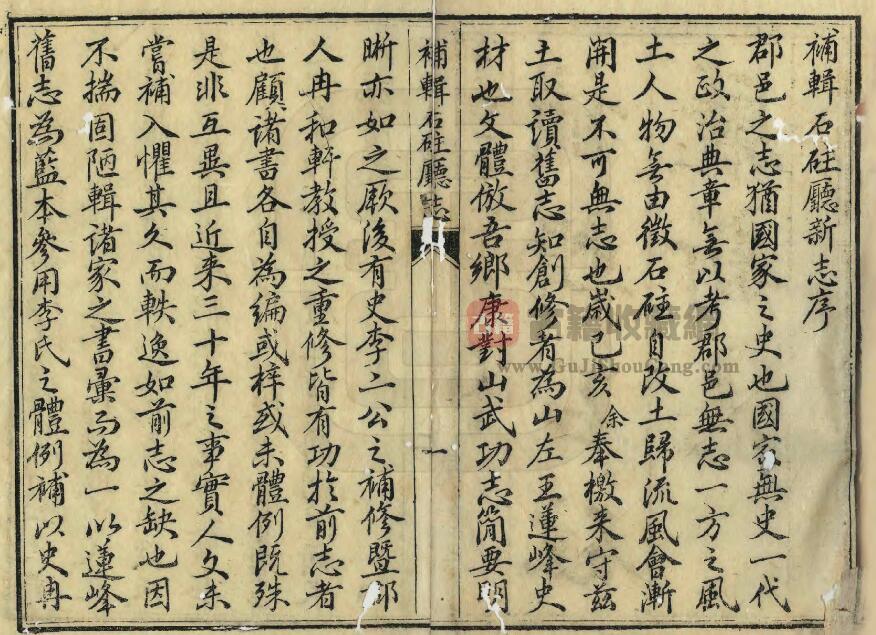 補輯石砫廳新志序
郡邑之志猶國家之史也國家無史一代
之政治典章無以考郡邑無志一方之風
土人物無由徵石砫自改土歸流風會漸
開是不可無志也歲己亥余奉檄来守茲
土取讀舊志知創修者為山左王蓮峰史
材也文體倣吾鄉康對山武功志簡要明
補輯石砫廳志
一
晰亦如之厥後有史李二公之補修暨郡
人冉和軒教授之重修皆有功於前志者
也顧諸書各自為編或梓或未體例既殊
是非互異且近来三十年之事實人文未
嘗補入懼其久而軼逸如前志之缺也因
不揣固陋輯諸家之書彙而為一以蓮峰
舊志為藍本參用李氏之體例補以史冉
古籍
古籍收藏網
www.GuJiShouCang.com